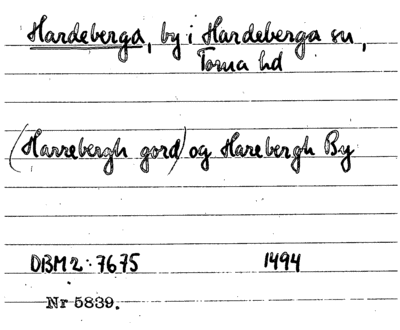 Hardeberga, by i Hardeberga sn,
Torna hd
(Harrebergh gord) og Harebergh By
DBM 2:7675 1494
Nr 5839.